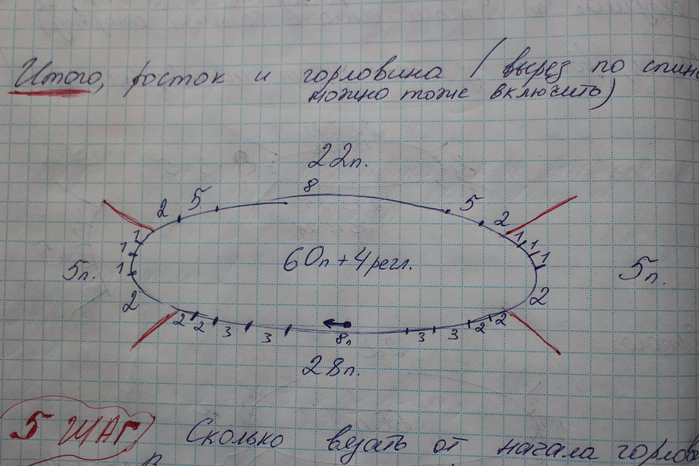 Итого, росток и горловина / (вырез по спин
можно тоже включить)
22п.
2 5 8 5 2
1 1 1 1
1 60п + 4 регл. 1
5п. 1 5п.
2 2
2 2 3 3 8п 3 3 2 2
28п.
5 ШАГ Сколько вязать от начала горлов